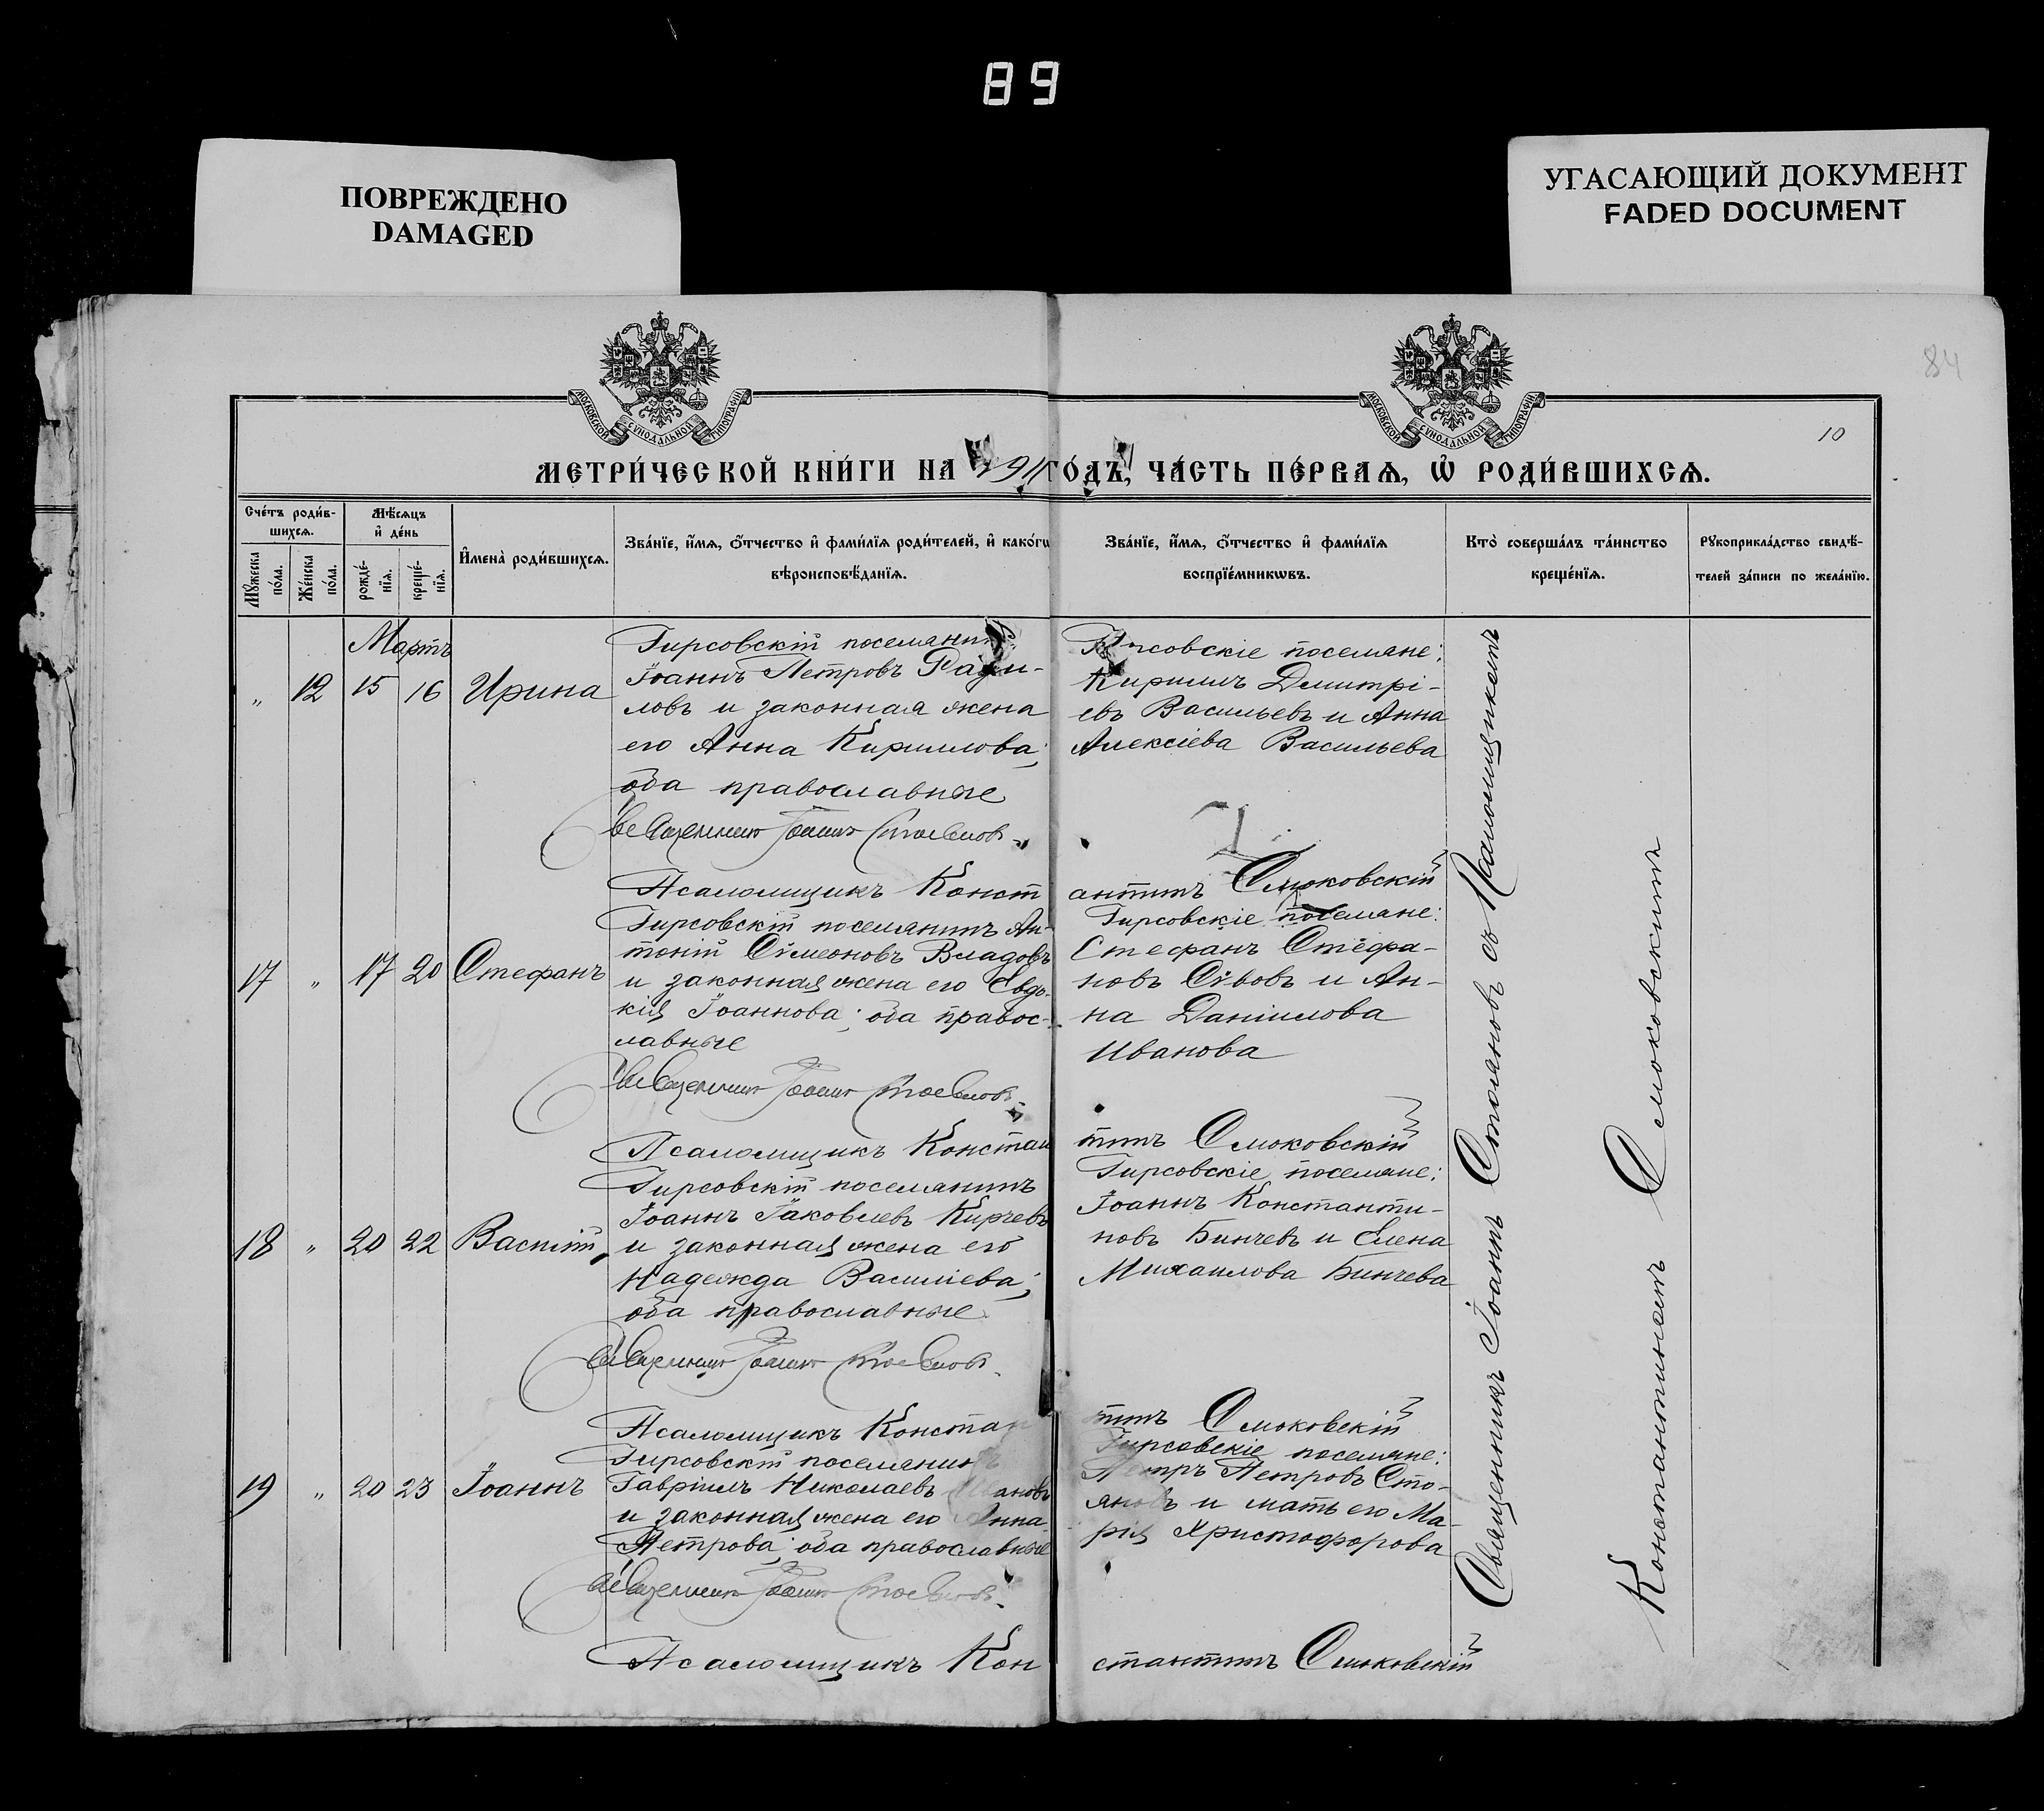 89
ПОВРЕЖДЕНО
DAMAGED
УГАСАЮЩИЙ ДОКУМЕНТ
FADED DOCUMENT
84
10
МОСКОВСКОЙ СѴНОДАЛЬНОЙ ТИПОГРАФІИ
МОСКОВСКОЙ СѴНОДАЛЬНОЙ ТИПОГРАФІИ
МЕТРИ́ЧЕСКОЙ КНИ́ГИ НА 1911 ГО́ДЪ, ЧА́СТЬ ПЕ́РВАѦ, Ѡ РОДИ́ВШИХСѦ.
Сче́тъ роди́в-
шихсѧ.
Мꙋ́жеска по́ла.
Же́нска по́ла.
Мѣ́сѧцъ
и҆ де́нь
рожде́-
нїѧ.
креще́-
нїѧ.
И҆мена̀ роди́вшихсѧ.
Зва́нїе, и҆́мѧ, ѻ҆́тчество и҆ фами́лїѧ роди́телей, и҆ како́гѡ
вѣроисповѣ́данїѧ.
Зва́нїе, и҆́мѧ, ѻ҆́тчество и҆ фами́лїѧ
воспрїе́мникѡвъ.
Кто̀ соверша́лъ та́инство
креще́нїѧ.
Рꙋкоприкла́дство свидѣ́-
телей за́писи по жела́нїю.
Мартъ
„ 12 15 16 Ирина
Гирсовскій поселянинъ
Іоаннъ Петровъ Ради-
ловъ и законная жена
его Анна Кириллова;
оба православные
Священникъ Іоаннъ Стояновъ
Гирсовскіе поселяне:
Кириллъ Димитрі-
евъ Васильевъ и Анна
Алексіева Васильева
Псаломщикъ Константинъ Смоковскій
17 „ 17 20 Стефанъ
Гирсовскій поселянинъ Ан-
тоній Сѵмеоновъ Владовъ
и законная жена его Евдо-
кія Іоаннова; оба правос-
лавные
Священникъ Іоаннъ Стояновъ
Гирсовскіе поселяне:
Стефанъ Стефа-
новъ Сѵвовъ и Ан-
на Даніилова
Иванова
Псаломщикъ Константинъ Смоковскій
18 „ 20 22 Василій
Гирсовскій поселянинъ
Іоаннъ Іаковлевъ Кирчевъ
и законная жена его
Надежда Василіева;
оба православные
Священникъ Іоаннъ Стояновъ
Гирсовскіе поселяне:
Іоаннъ Константи-
новъ Бинчевъ и Елена
Михаилова Бинчева
Псаломщикъ Константинъ Смоковскій
19 „ 20 23 Іоаннъ
Гирсовскій поселянинъ
Гавріилъ Николаевъ Ивановъ
и законная жена его Анна
Петрова; оба православные
Священникъ Іоаннъ Стояновъ
Гирсовскіе поселяне:
Петръ Петровъ Сто-
яновъ и мать его Ма-
рія Христофорова
Псаломщикъ Константинъ Смоковскій
Священникъ Іоаннъ Стояновъ съ Псаломщикомъ
Константиномъ Смоковскимъ